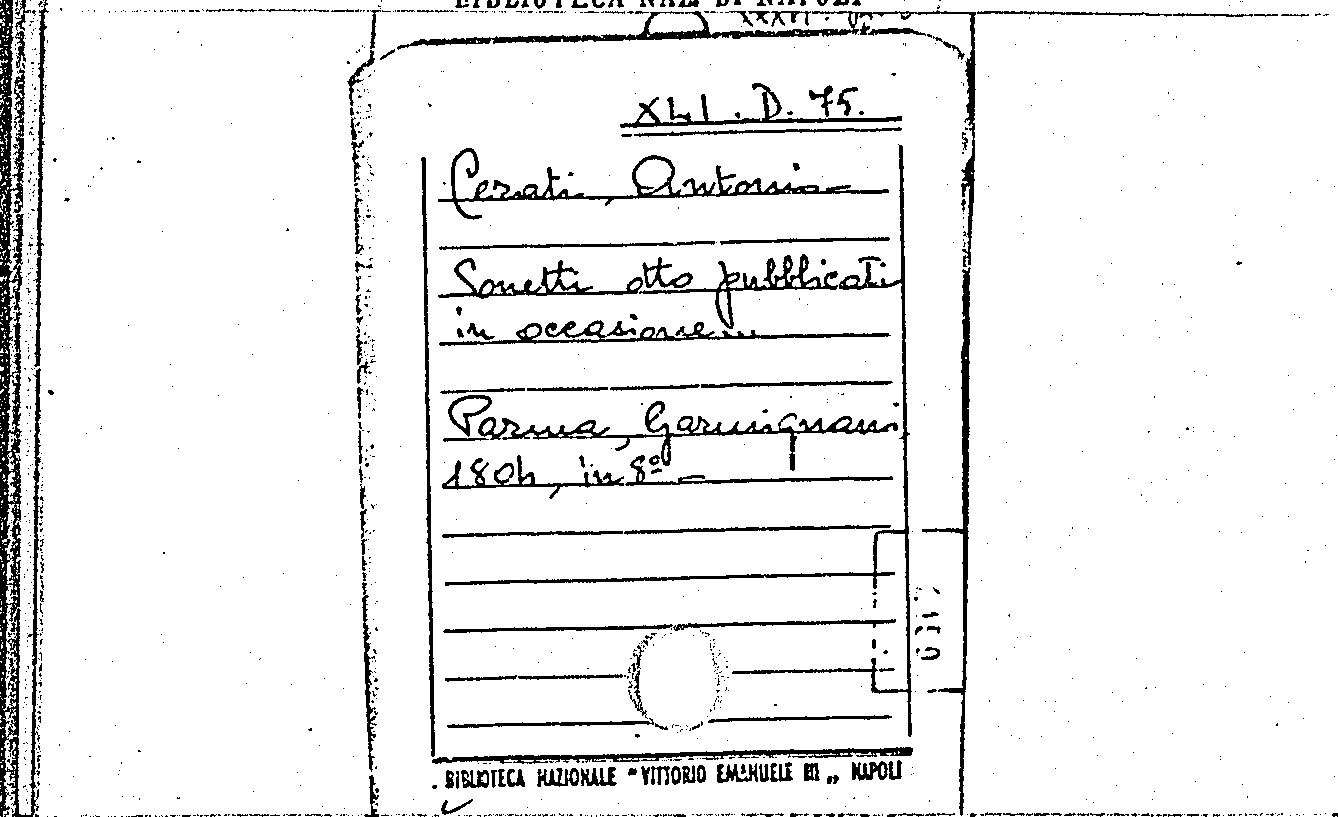 BIBLIOTECA NAZ. DI NAPOLI
XLI. D. 75.
Cerati, Antonio
Sonetti otto pubblicati
in occasione...
Parma, Carmignani
1804, in 8º –
BIBLIOTECA NAZIONALE "VITTORIO EMANUELE III„ NAPOLI